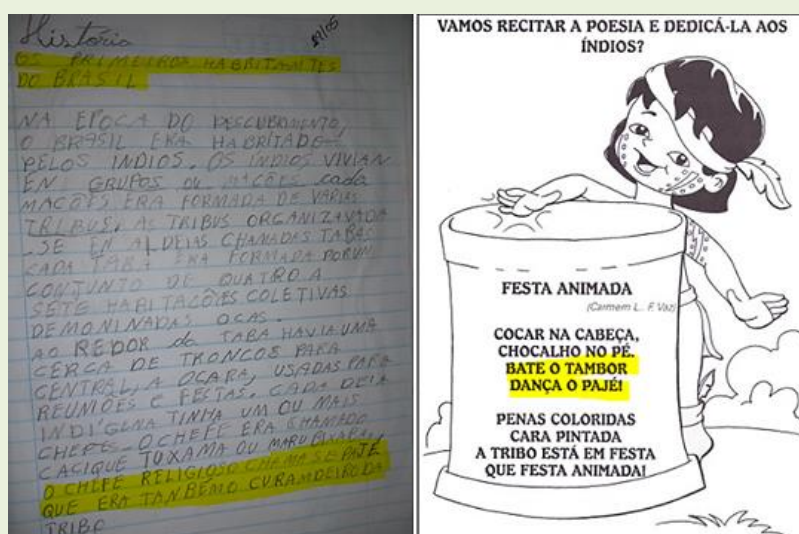 História
OS PRIMEIROS HABRITANTES
DO BRASIL
NA EPOCA DO DESCUBRIMENTO,
O BRASIL ERA HABRITADO
PELOS INDIOS. OS INDIOS VIVIAN
EN GRUPOS OU NACÕES cada
MACÕES ERA FORMADA DE VARIAS
TRIBUS, AS TRIBUS ORGANIZAVADA
-SE EN ALDEIAS CHAMADAS TABAS
CADA TABA ERA FORMADA PORUN
CONJUNTO DE QUATRO A
SETE HABITACÕES COLETIVAS
DEMONINADAS OCAS.
AO REDOR da TABA HAVIA UMA
CERCA DE TRONCOS PARA
CENTRAL, A OCARA, USADAS PARA
REUNIÕES E FESTAS. CADA DEIA
INDIGENA TINHA UM OU MAIS
CHEFES O CHEFE ERA CHAMADO
CACIQUE TUXAMA OU
O CHEFE RELIGIOSO CHEMASE PAJÉ
QUE ERA TANBÉMO CURAMDEIRO DA
TRIBO
VAMOS RECITAR A POESIA E DEDICÁ-LA AOS
ÍNDIOS?
FESTA ANIMADA
(Carmem L. F. Vaz)
COCAR NA CABEÇA,
CHOCALHO NO PÉ.
BATE O TAMBOR
DANÇA O PAJÉ!
PENAS COLORIDAS
CARA PINTADA
A TRIBO ESTÁ EM FESTA
QUE FESTA ANIMADA!